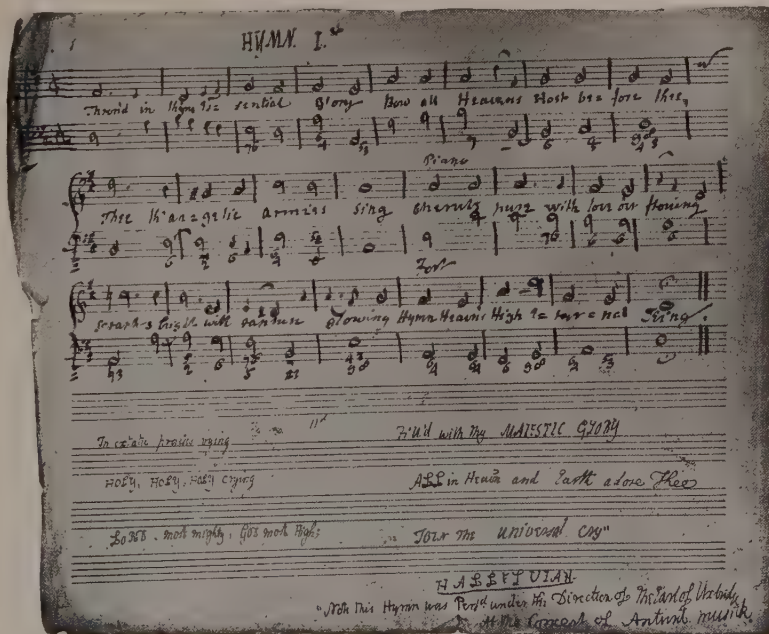 HYMN. I.st
Thron'd in thy es= sential Glory Bow all Heavens Host be= fore thee,
Piano
Thee th'an= gelic Armies sing cherubs pure with love o'er flowing
Fort
Seraphs bright with rapture glowing Hymn Heavns High E= ter= nal King.
IId
In extatic praises vying
Fill'd with Thy MAJESTIC GLORY
HOLY, HOLY, HOLY crying
ALL in Heav'n and Earth adore Thee
LORD most mighty, GOD most High;
Join the universal Cry"
HALLELUIAH
"Note this Hymn was Perfd under the Direction of The Earl of Uxbridg
At the Concert of Antient musick